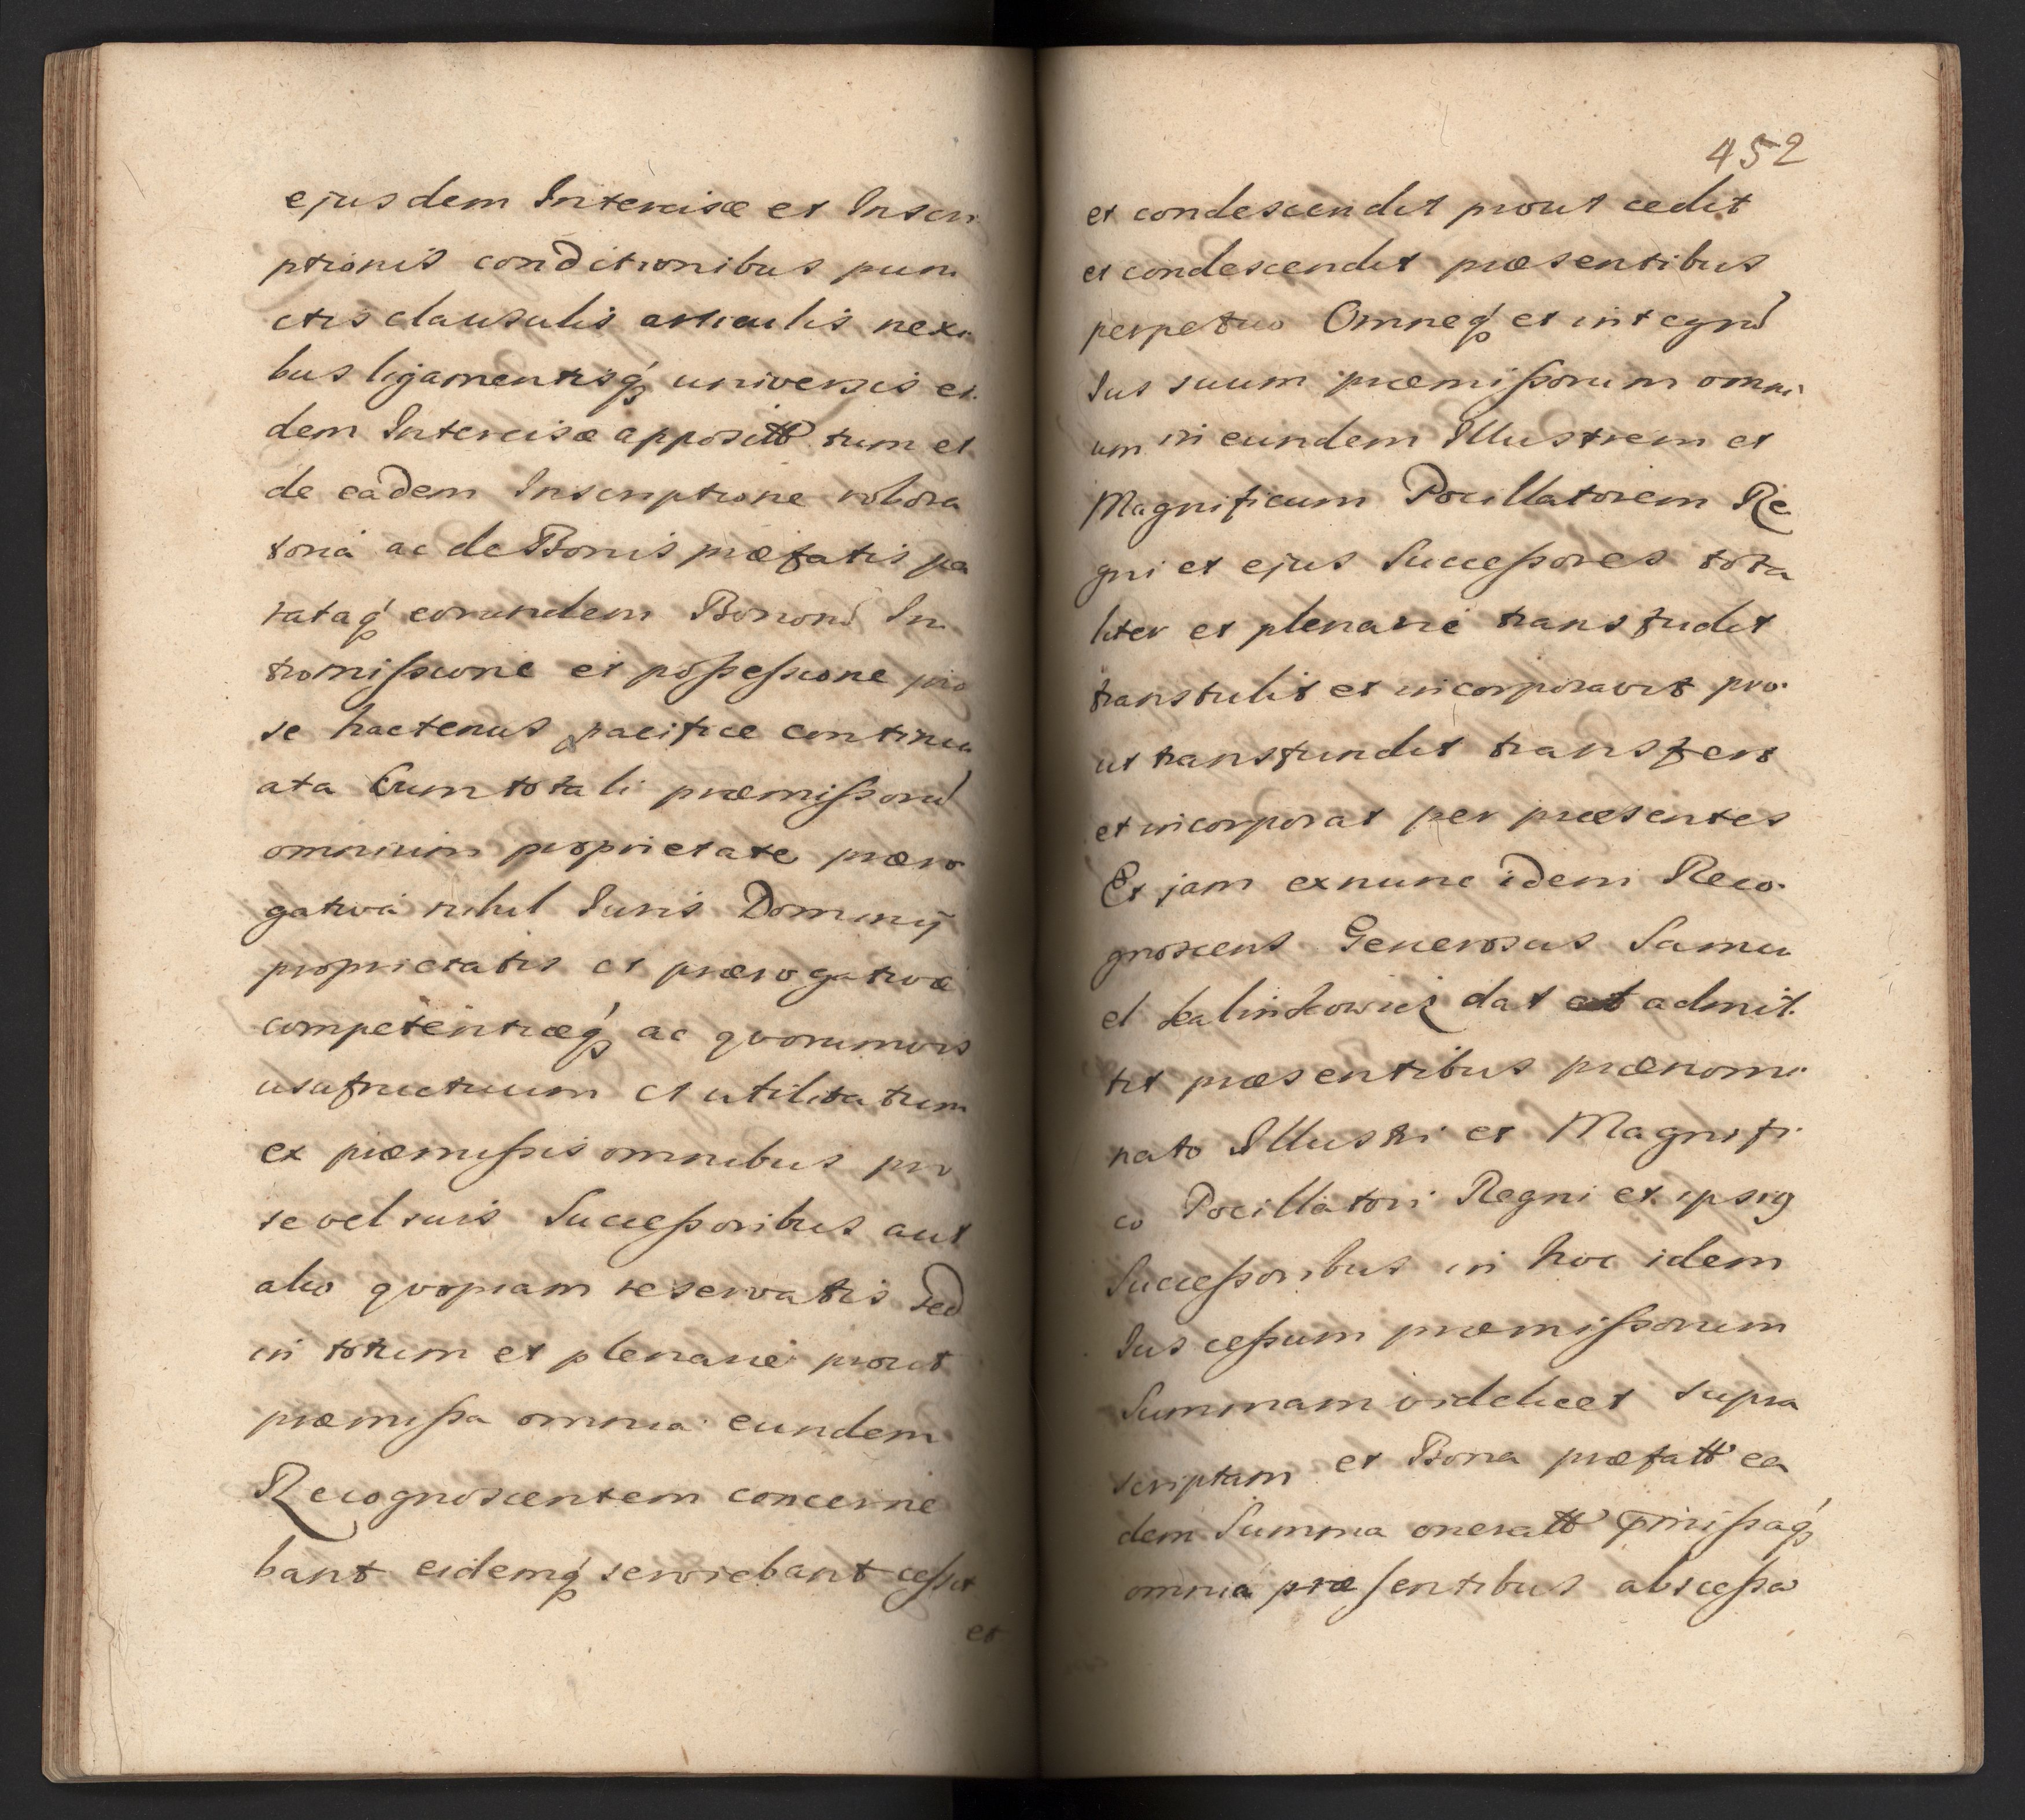 ejusdem Intercisæ et Inscri
ptionis conditionibus pun
ctis clausulis articulis nexi
bus ligamentisq́ꝫ universis ei
dem Intercisæ apposittt tum et
de eadem Inscriptione robora
toriá ac de Bonis præfatis pa
rataq́ꝫ eorundem Bonorũ In
tromißione et poßeßione pro
se hactenus pacifice continu
ata Cum totali præmißorũ
omnium proprietate præro
gativá nihil Iuris Dominÿ
proprietatis et prærogativæ
competentiæq́ꝫ ac qvorumvis
usufructuum et utilitatum
ex præmißis omnibus pro
se vel suis Succeßoribus aut
alio qvopiam reservatis sed
in totum et plenarie prout
præmißa omnia eundem
Recognoscentem concerne
bant eidemq́ꝫ serviebant ceßit
et
452
et condescendit prout cedit
et condescendit præsentibus
perpetuo Omneq́ꝫ et integrũ
Ius suum præmißorum omni
um in eundem Illustrem et
Magnificum Pocillatorem Re
gni et ejus Succeßores tota
liter et plenarie transfudit
transtulit et incorporavit pro
ut transfundit transfert
et incorporat per præsentes
Et jam exnunc idem Reco
gnoscens Generosus Samu
el Kalinkowicz dat et admit
tit præsentibus prænomi
nato Illustri et Magnifi
co Pocillatori Regni et ipsig
Succeßoribus in hoc idem
Ius ceßum præmißorum
Summam videlicet supra
scriptam et Bona præfattt ea
dem Summa onerattt p̃mißaq́ꝫ
omnia præsentibus absceßa